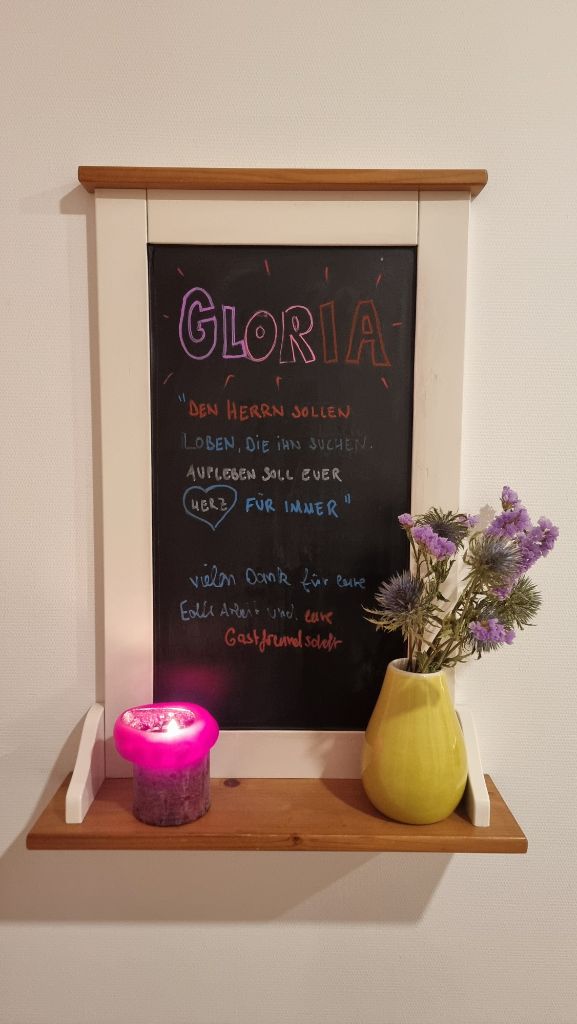 GLORIA
"DEN HERRN SOLLEN
LOBEN, DIE IHN SUCHEN.
AUFLEBEN SOLL EUER
HERZ FÜR IMMER"
vielen Dank für eure
Edle Arbeit und eure
Gastfreundschaft